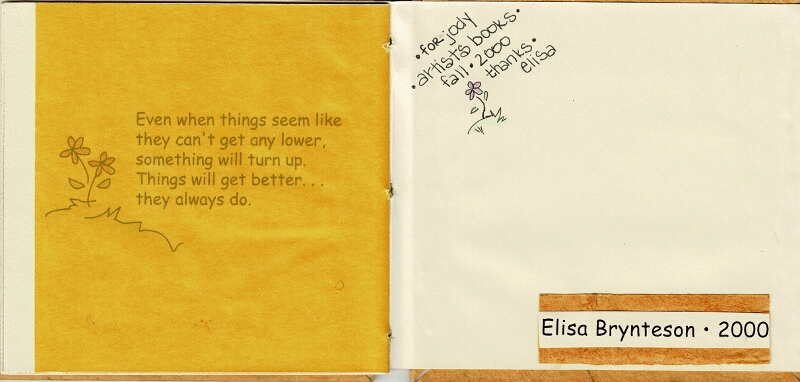 Even when things seem like
they can't get any lower,
something will turn up.
Things will get better. . .
they always do.
• for jody
• artists books •
fall • 2000
thanks •
elisa
Elisa Brynteson • 2000